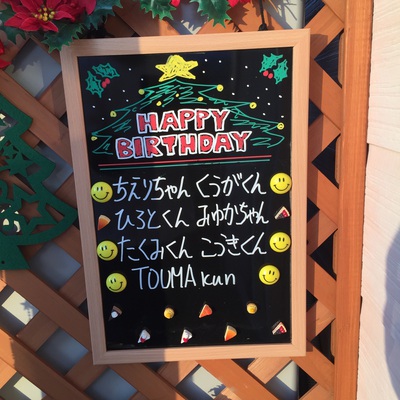 HAPPY
BIRTHDAY
ちえりちゃん くうがくん
ひろとくん みゆかちゃん
たくみくん こうきくん
TOUMA kun